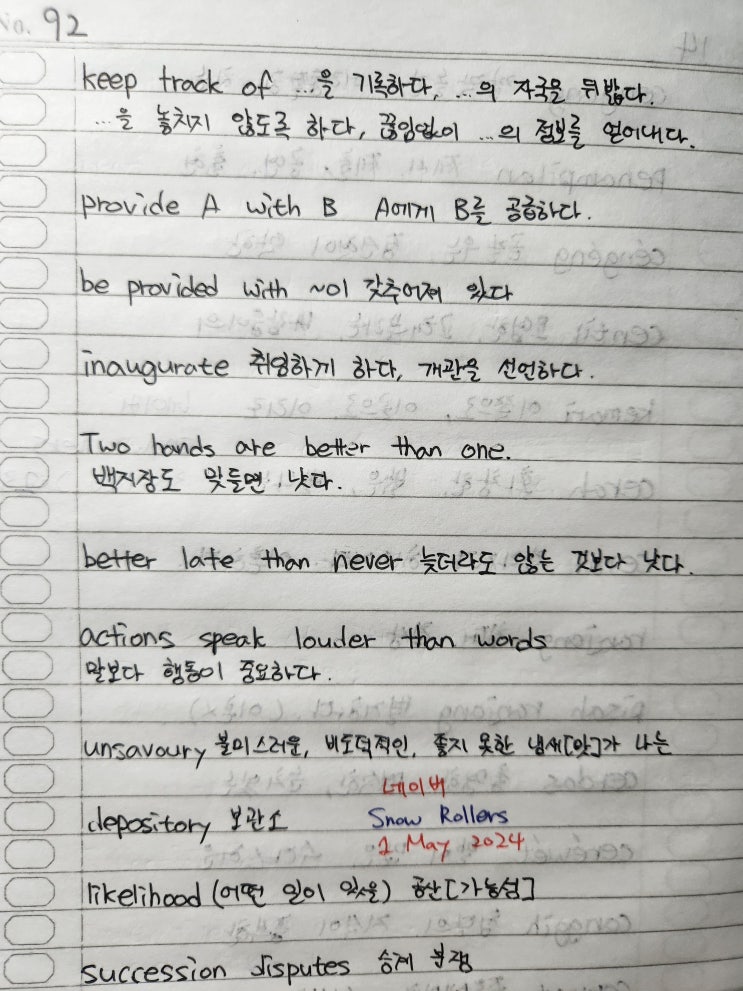 No. 92
keep track of ...을 기록하다, ...의 자국을 뒤밟다.
...을 놓치지 않도록 하다, 끊임없이 ...의 정보를 얻어내다.
provide A with B A에게 B를 공급하다.
be provided with ~이 갖추어져 있다
inaugurate 취임하게 하다, 개관을 선언하다.
Two hands are better than one.
백지장도 맞들면 낫다.
better late than never 늦더라도 않는 것보다 낫다.
actions speak louder than words
말보다 행동이 중요하다.
unsavoury 불미스러운, 비도덕적인, 좋지 못한 냄새[맛]가 나는
네이버
depository 보관소 Snow Rollers
1 May 2024
likelihood (어떤 일이 있을) 공산[가능성]
succession disputes 승계 분쟁